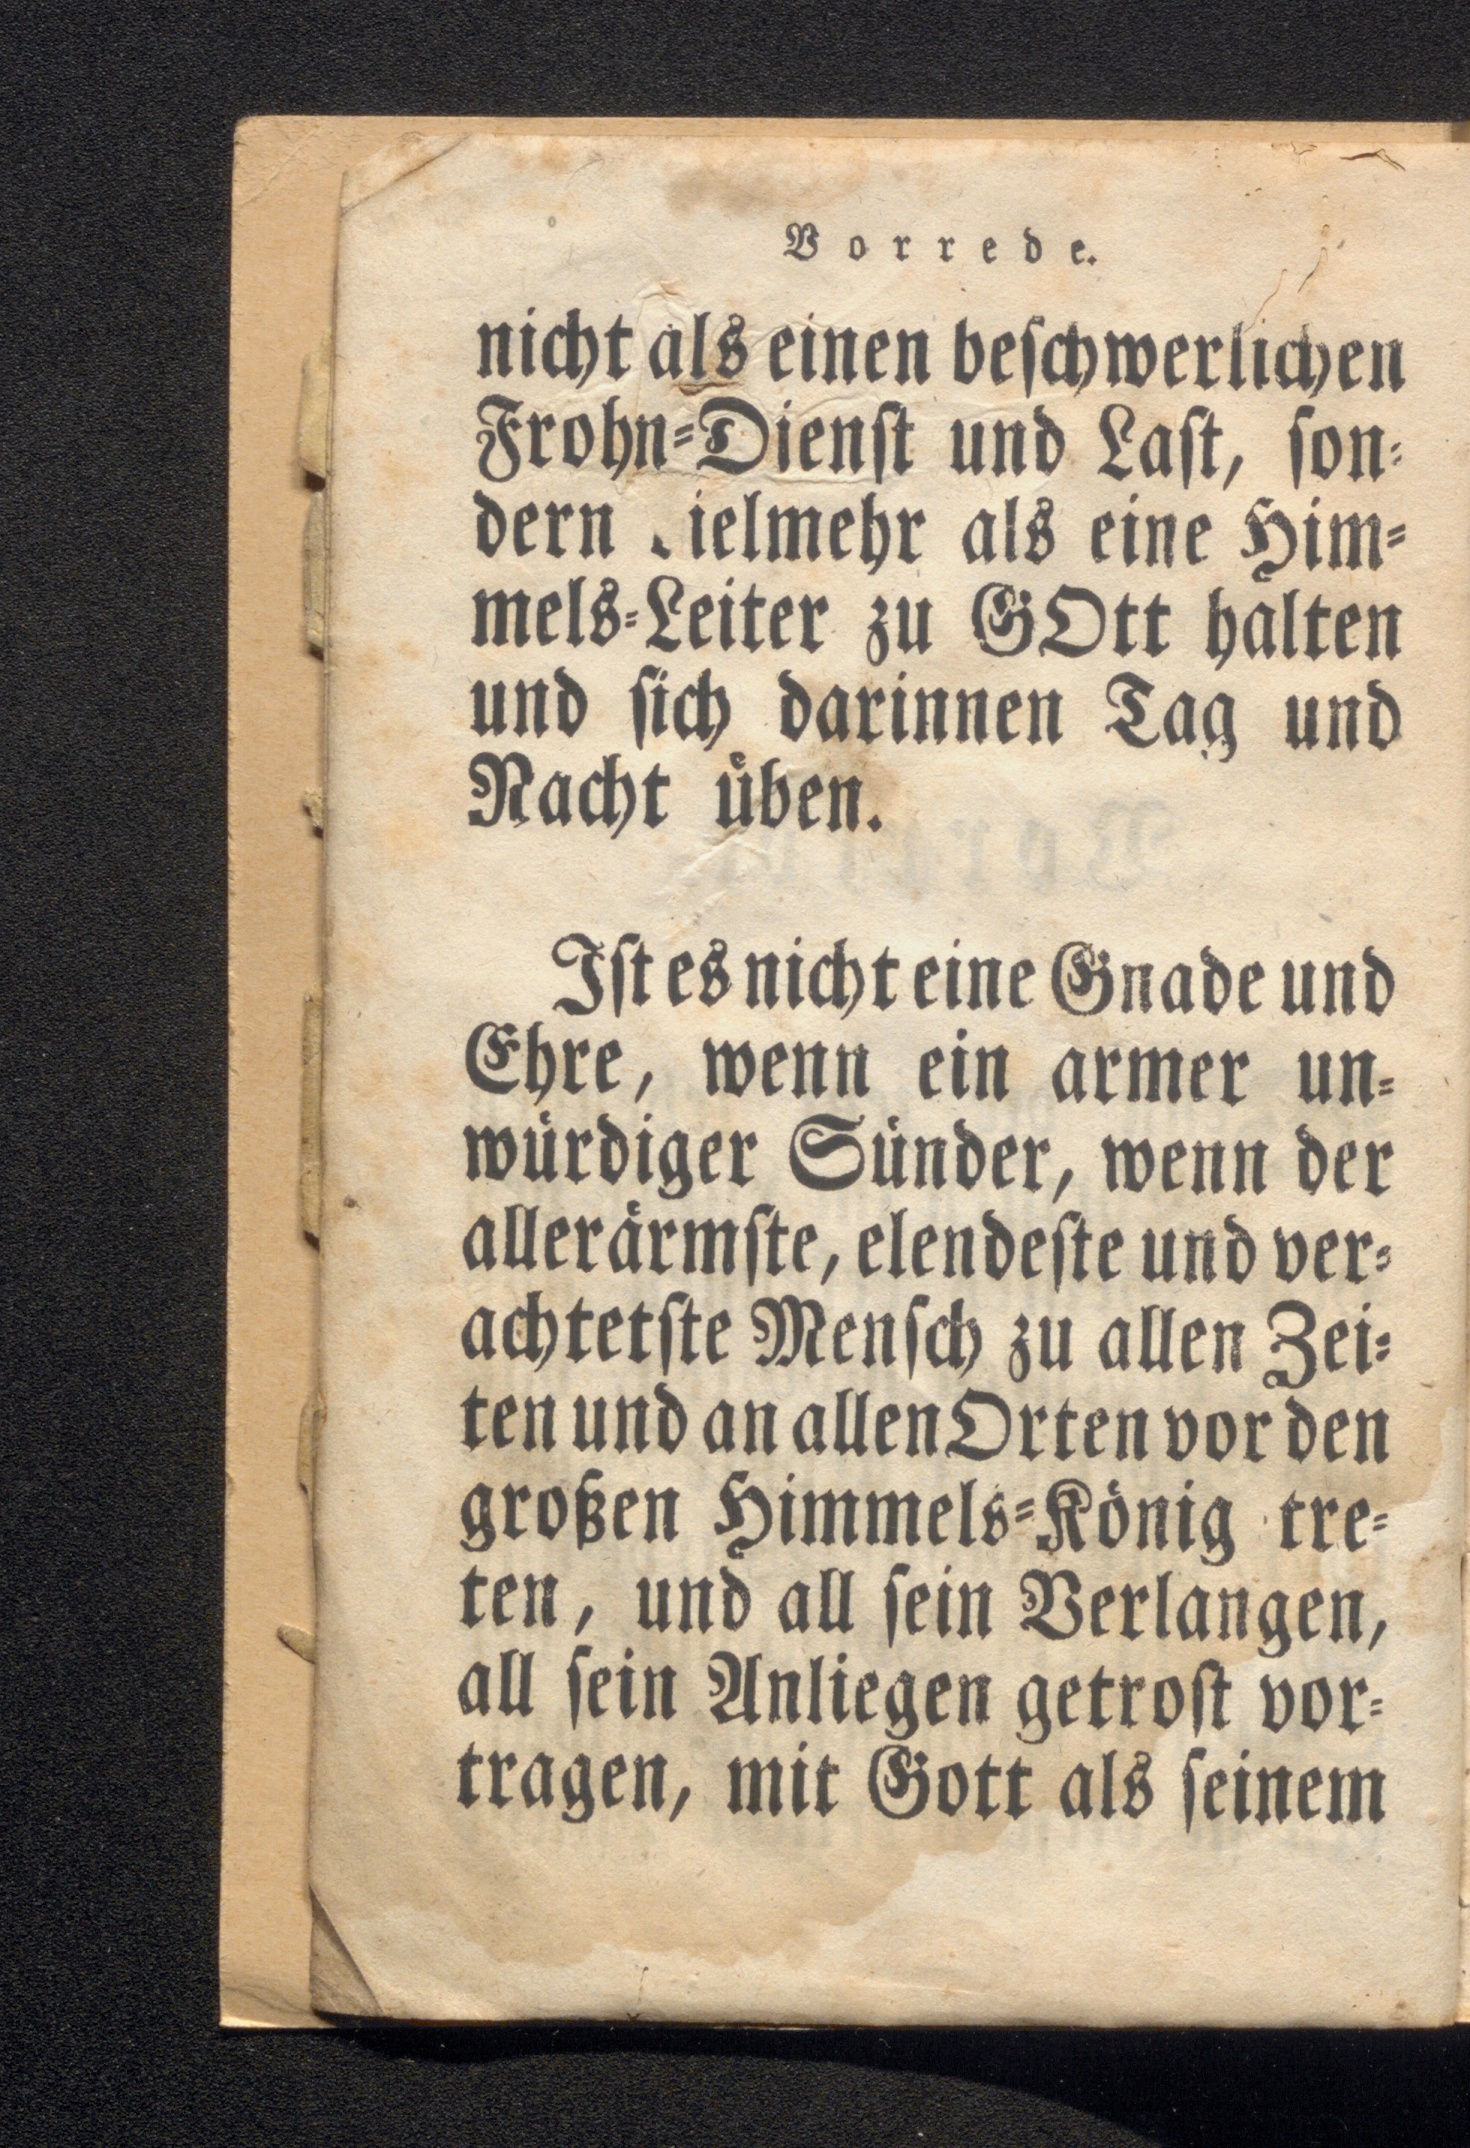 Vorrede.
nicht als einen beſchwerlichen
Frohn⸗Dienſt und Laſt, ſon⸗
dern ielmehr als eine Him⸗
mels⸗Leiter zu GOtt halten
und ſich darinnen Tag und
Nacht uͤben.
Iſt es nicht eine Gnade und
Ehre, wenn ein armer un⸗
wuͤrdiger Suͤnder, wenn der
alleraͤrmſte, elendeſte und ver⸗
achtetſte Menſch zu allen Zei⸗
ten und an allen Orten vor den
großen Himmels⸗Koͤnig tre⸗
ten, und all ſein Verlangen,
all ſein Anliegen getroſt vor⸗
tragen, mit Gott als ſeinem